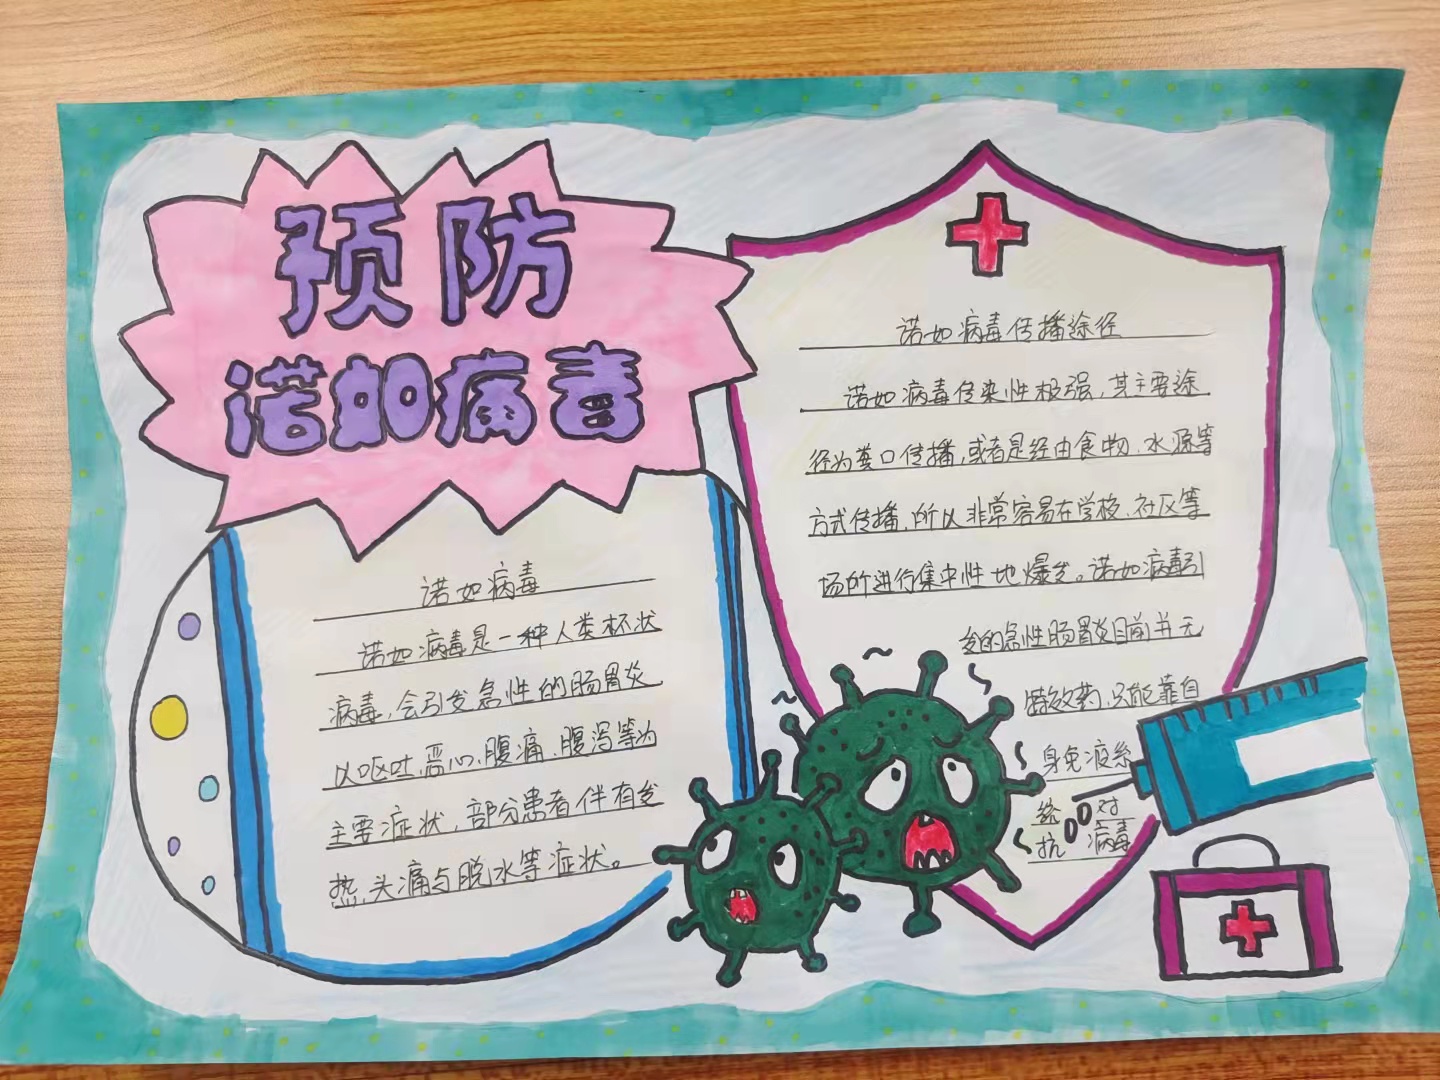 预防
诺如病毒
诺如病毒
诺如病毒是一种人类杯状
病毒,会引发急性的肠胃炎
以呕吐、恶心、腹痛、腹泻等为
主要症状,部分患者伴有发
热,头痛与脱水等症状。
诺如病毒传播途径
诺如病毒传染性极强,其主要途
径为粪口传播,或者是经由食物、水源等
方式传播,所以非常容易在学校、社区等
场所进行集中性地爆发。诺如病毒引
发的急性肠胃炎目前并无
特效药,只能靠自
身免疫系
统 对
抗 病毒